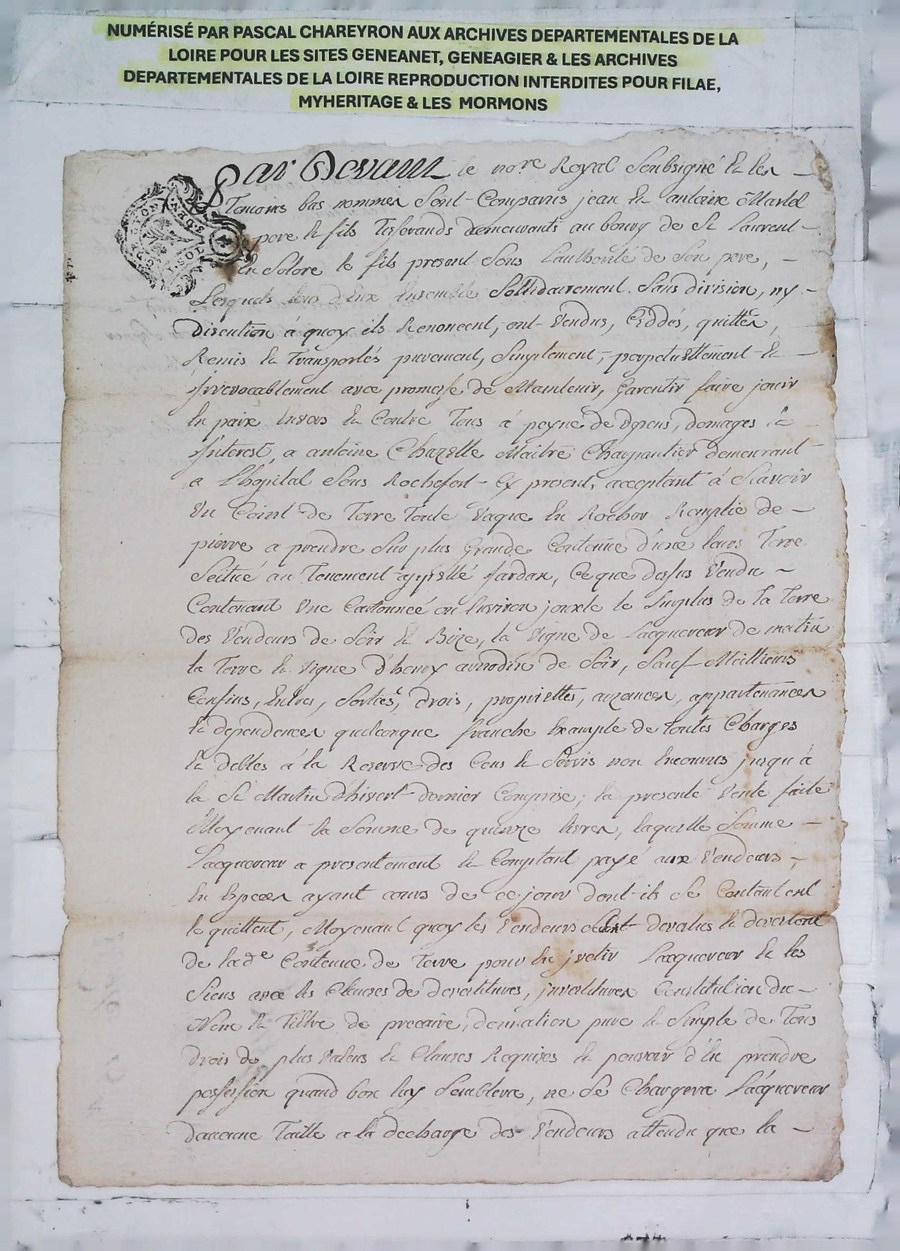 NUMÉRISÉ PAR PASCAL CHAREYRON AUX ARCHIVES DEPARTEMENTALES DE LA
LOIRE POUR LES SITES GENEANET, GENEAGIER & LES ARCHIVES
DEPARTEMENTALES DE LA LOIRE REPRODUCTION INTERDITES POUR FILAE,
MYHERITAGE & LES MORMONS
Par Devant le nore Royal Soubsigné Et les
Temoins bas nommes Sont Comparus jean Et antoine
pere Et fils Tisserands demeurants au bourg de St Laurent
En Solore le fils present Sous Lauthorité de Son pere,
Lesquels tous d'Eux Ensemble Sollidairement Sans division, ny
discution á quoy ils Renoncent, ont Vendus, Ceddés, quittés,
Remis Et Transportés purement, Simplement, perpetuellement Et
Irrevocablement avec promesse de Maintenir, Garentir faire jouir
En paix Envers Et Contre Tous á peyne de depens, domages Et
Interest, a antoine Chazelle Maitre Charpantier demeurant
a L'hopital Sous Rochefort Cy present, acceptant á Scavoir
Un Coint de Terre Toute Vaque En Rocher Remplie de
pierre a prendre Sur plus Grande Contenüe d'une leurs Terre
Scitué au Tenement appellé Jardan, Ce que dessus Vendu
Contenant Une Cartonnée ou Environ jouxte le Surplus de la Terre
des Vendeurs de Soir Et Bize, la Vigne de Lacquereur de matin
la Terre Et Vigne d'henry de Soir, Sauf Meillieurs
Confins, Entres, Sorties, drois, proprietés, aizances, appartenances
Et dependences quelconque franche Exempte de toutes Charges
Et debtes á la Reserve des Cens Et Servis non Encourus jusqu'á
la St Martin d'hivert dernier Comprise; la presente Vente faite
Moyenant la Somme de quinze livres, laquelle Somme
Lacquereur a presentement Et Comptant payé aux Vendeurs,
En Especes ayant cours de ce jour dont ils Se Contentent
le quittent, Moyenant quoy les Vendeurs devetus Et devetent
de lade Contenue de Terre pour En jvetir Lacquereur Et les
Siens avec les Clauses de devetitures, jnvetitures Constitution du
Nom Et Tiltre de precaire, donnation pure Et Simple de Tous
drois de plus Values Et Clauses Requizes Et pouvoir d'En prendre
possession quand bon luy Semblera, ne Se Chargera Lacquereur
daucune Taille a la decharge des Vendeurs attendu que la